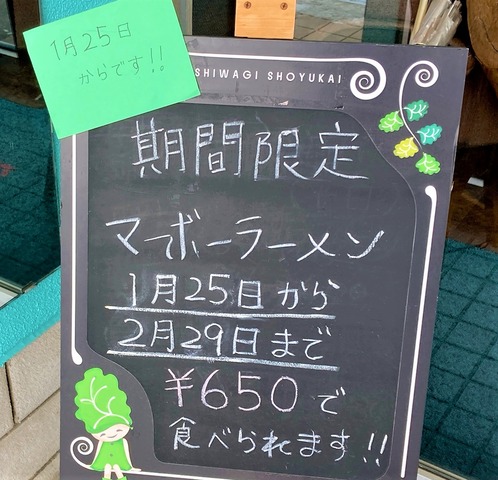 1月25日
からです!!
SHIWAGI SHOYUKAI
期間限定
マーボーラーメン
1月25日から
2月29日まで
¥650で
食べられます!!